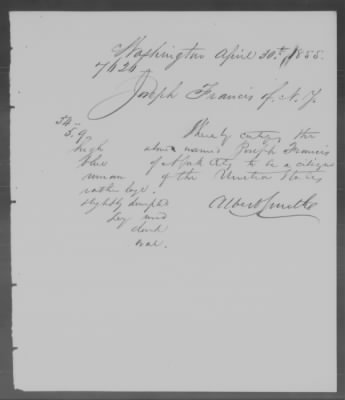 Washington April 30th, 1855.
7626
Joseph Francis of N. Y.
54
5.9
high
blue
rather large
slightly dimpled
dark
oval.
I hereby certify the
above named Joseph Francis
of York City to be a citizen
of the United States
Albert Smith